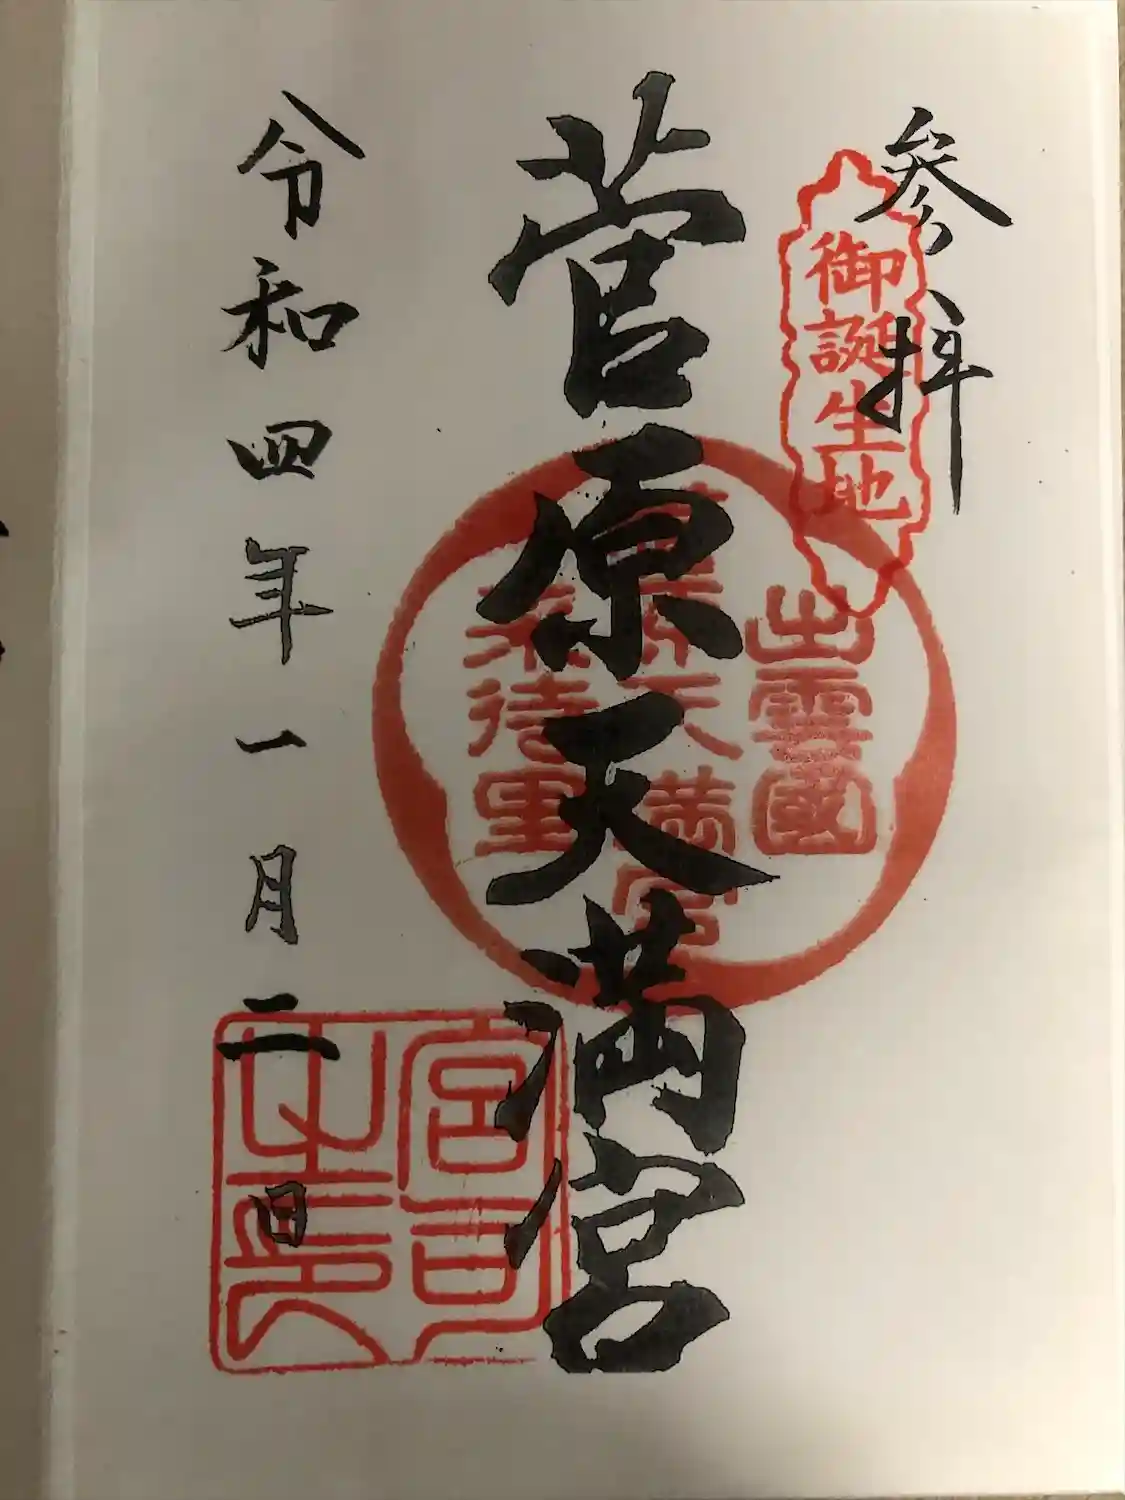 参拝
御誕生地
出雲國
菅原天満宮
来待里
菅原天満宮
令和四年一月二日
宮司
之印